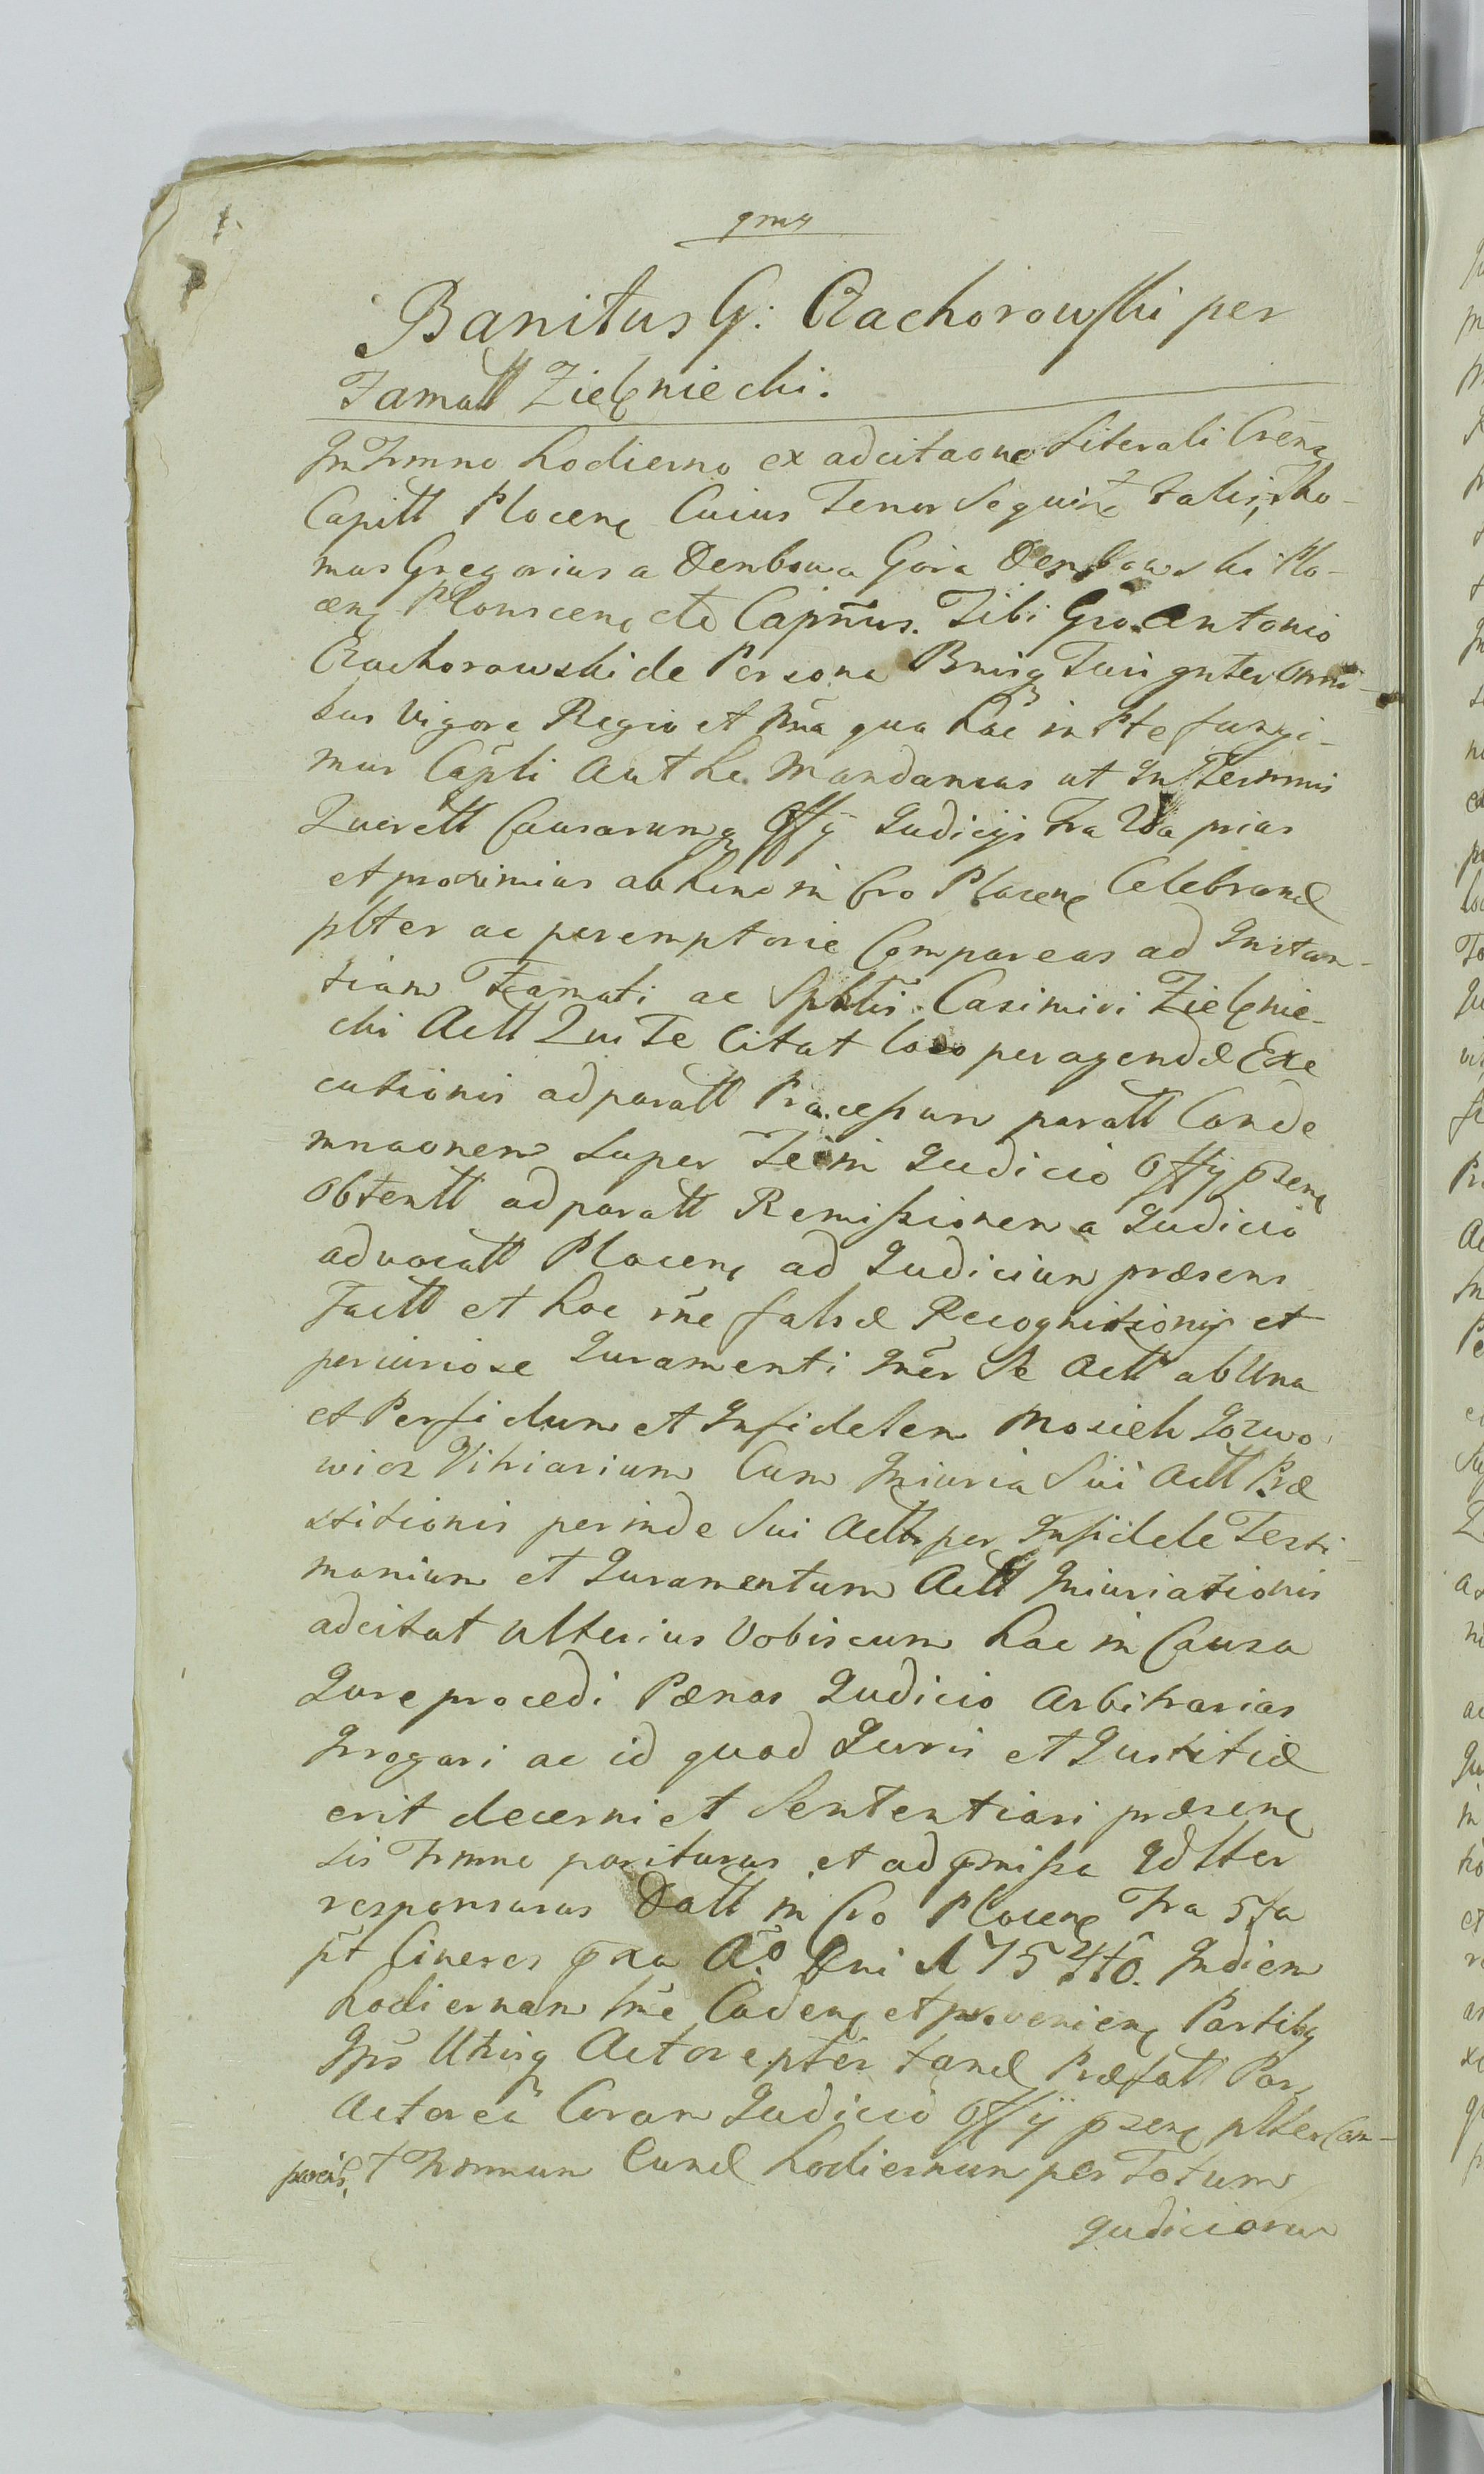 Banitus G: Czachorowski per
Famatt Zielęniecki.
In Trmno hodierno ex adcitaone Literali Crenę
Capitt Plocenę Cuius Tenor Sequitr talis, Tho-
mas Gregorius a Dembowa Góra Dembowski Plo-
cenę Plonscenę etc Capnẽus. Tibi Gro. Antonio
Czachorowski de Persona Bnisq Tuis gnter Omni-
bus Vigore Regio et nrã qua hac in Pte fungi-
mur Capli Authe Mandamus ut In Terminis
Querell Causarumq Offÿ Judicÿs Fra 2da prias
et proximias ab hinc in Cro Plocenę Celebrand
plter ac peremptorie Compareas ad Instan-
tiam Famati ac Spblis Casimiri Zielęnie-
cki Actt Qui Te Citat loco peragendæ Exe
cutionis ad paratt Processum paratt Conde
mnaonem super Te in Judicio Offÿ pzenę
Obtentt ad paratt Remissionem a Judicio
advocatt Plocenę ad Judicium præsens
Factt et hoc rñe falsæ Recognitionis et
periuriose Juramenti Inẽr Se Actt ab Una
et Perfidum et Infidelem Mosiek Jozwo
wicz Vitriarium Cum Iniuria Sui Actt Præ
stitionis perinde Sui Actt per Infidele Testi-
monium et Juramentum Actt Iniuriationis
adcitat ulterius Vobiscum hac in Causa
Jure procedi Pænas Judicio Arbitrarias
Irrogari ac id quod Juris et Justitiæ
erit decerni et Sententiari præsenę
sis Trmne pariturus et ad pmissa Jdtter
responsurus Datt in Cro Plocenę Fra 5ta
pt Cineres pxa Ao Dni 1754to. In diem
hodiernam hnẽ Cadenę et provenienę Partibq
Ips Utrisq Actore pter tand Præfatt Pars
Actorea Coram Judicio Offÿ pzenę plter Com-
parens, t Trmnum Eund hodiernum per Totum
Judiciorum